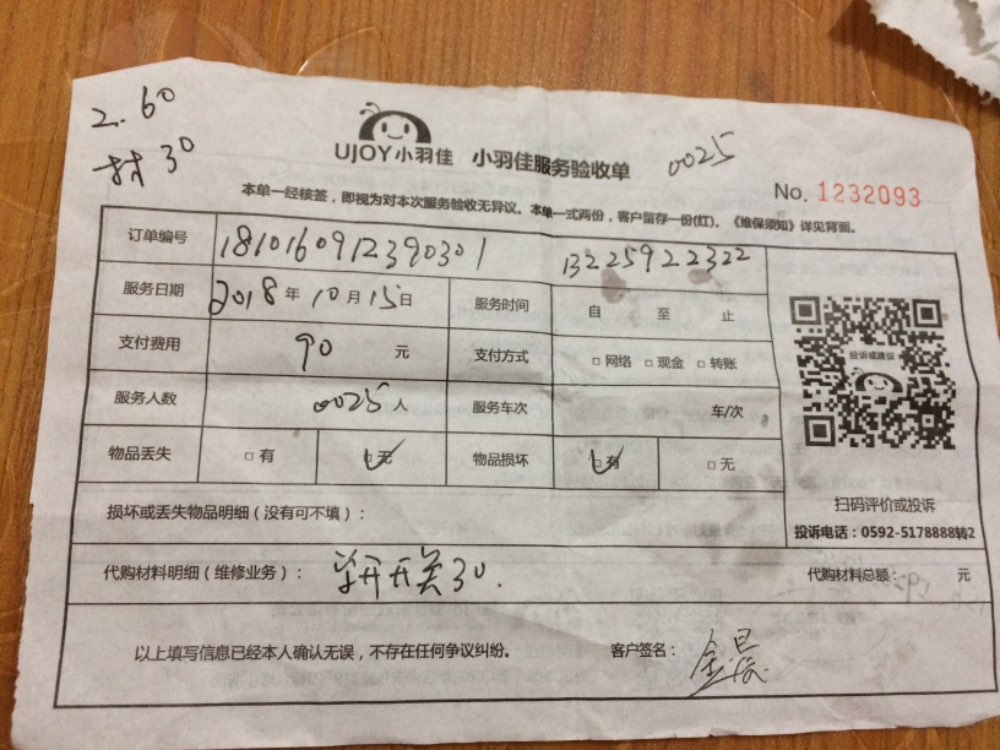 2. 60
材 30
UJOY小羽佳 小羽佳服务验收单 0025
No. 1232093
本单一经核签，即视为对本次服务验收无异议。本单一式两份，客户留存一份(红)。《维保须知》详见背面。
订单编号 1810160912390301 13225922322
服务日期 2018年10月15日 服务时间 自 至 止
支付费用 90 元 支付方式 □网络 □现金 □转账
服务人数 0025人 服务车次 车/次
物品丢失 □有 □无 物品损坏 □有 □无
投诉或建议
扫码评价或投诉
投诉电话：0592-5178888转2
损坏或丢失物品明细（没有可不填）：
代购材料明细（维修业务）： 单开开关30. 代购材料总额： 元
以上填写信息已经本人确认无误，不存在任何争议纠纷。 客户签名：